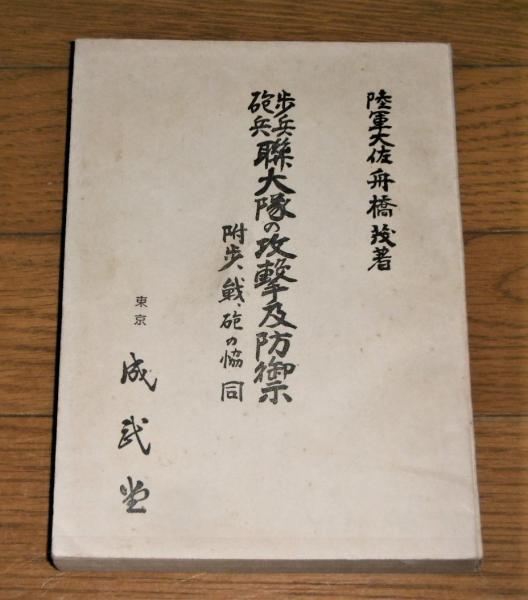 陸軍大佐舟橋茂著
歩兵砲兵聯大隊の攻撃及防御
附歩、戦、砲の協同
東京
成武堂